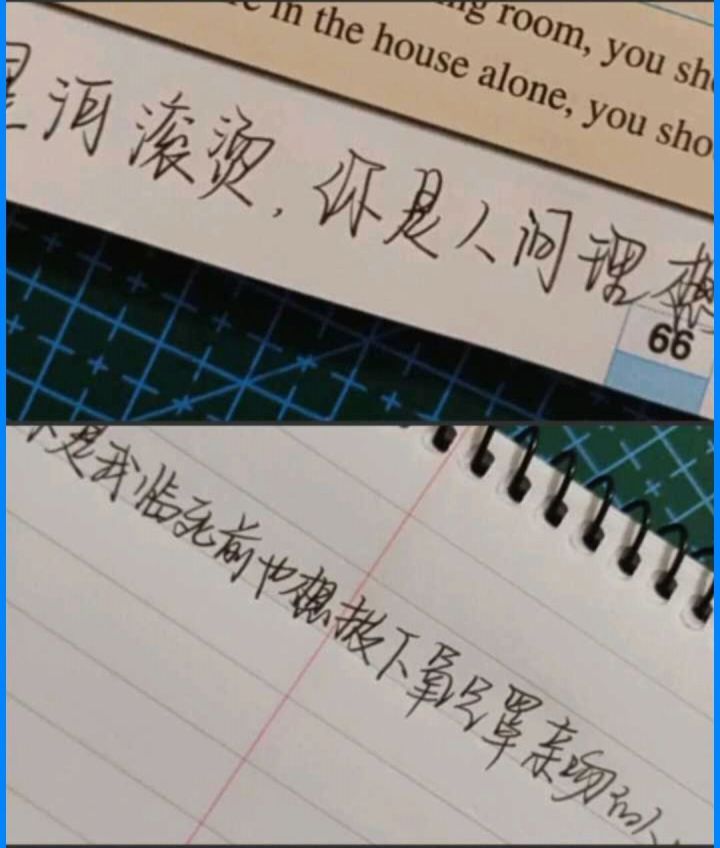 ng room, you sh
in the house alone, you sho
星河滚烫，你是人间理想
66
你是我临死前也想拔下氧气罩亲吻的人